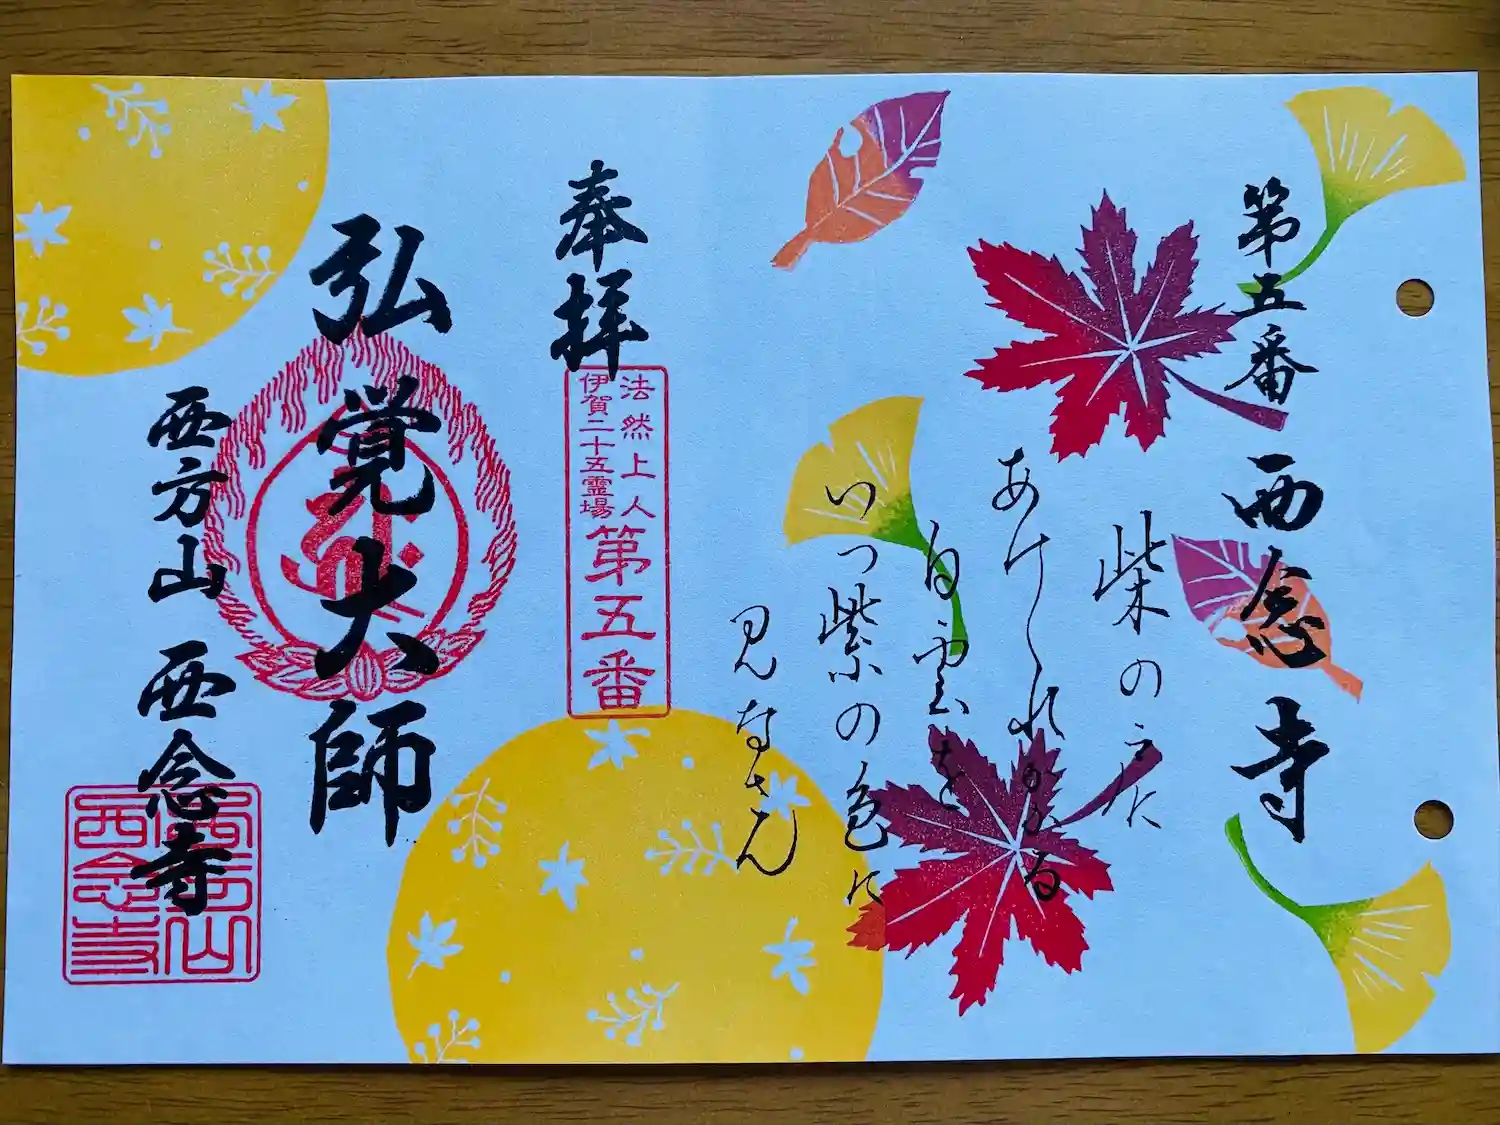 第五番 西念寺
柴の戸に
あけくれかゝる
白雲を
いつ紫の色に
見なさん
奉拝
法然上人
伊賀二十五霊場
第五番
弘覚大師
西方山 西念寺
西念寺